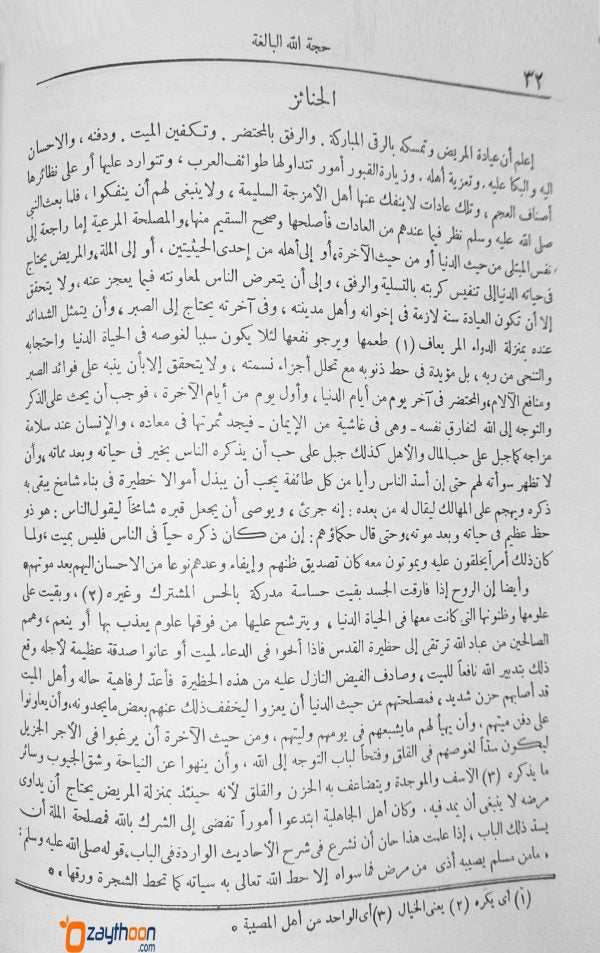 حجة الله البالغة
٣٢
الجنائز
إعلم أن عيادة المريض وتمسكه بالرقى المباركة . والرفق بالمحتضر . وتكفين الميت . ودفنه ، والاحسان
اليه والبكا عليه . وتعزية أهله . وزيارة القبور أمور تتداولها طوائف العرب ، وتتوارد عليها أو على نظائرها
أصناف العجم ، وتلك عادات لا ينفك عنها أهل الأمزجة السليمة ، ولا ينبغى لهم أن ينفكوا ، فلما بعث النبي
صلى الله عليه وسلم نظر فيما عندهم من العادات فأصلحها وصحح السقيم منها، والمصلحة المرعية إما راجعة إلى
نفس المبتلى من حيث الدنيا أو من حيث الآخرة، أو إلى أهله من إحدى الحيثيتين ، أو إلى الملة، والمريض يحتاج
فى حياته الدنيا إلى تنفيس كربته بالتسلية والرفق ، وإلى أن يتعرض الناس لمعاونته فيما يعجز عنه ، ولا يتحقق
إلا أن تكون العيادة سنة لازمة فى إخوانه وأهل مدينته ، وفى آخرته يحتاج إلى الصبر ، وأن يتمثل الشدائد
عنده بمنزلة الدواء المر يعاف (١) طعمها ويرجو نفعها لئلا يكون سببا لغوصه فى الحياة الدنيا واحتجابه
والتنحى من ربه ، بل مؤيدة فى حط ذنوبه مع تحلل أجزاء نسمته ، ولا يتحقق إلا بأن ينبه على فوائد الصبر
ومنافع الآلام، والمحتضر فى آخر يوم من أيام الدنيا ، وأول يوم من أيام الآخرة ، فوجب أن يحث على الذكر
والتوجه إلى الله لتفارق نفسه ـ وهى فى غاشية من الإيمان ـ فيجد ثمرتها فى معاده ، والإنسان عند سلامة
مزاجه كما جبل على حب المال والأهل كذلك جبل على حب أن يذكره الناس بخير فى حياته وبعد مماته ، وأن
لا تظهر سوأته لهم حتى إن أسد الناس رأيا من كل طائفة يحب أن يبذل أموالا خطيرة فى بناء شامخ يبقى به
ذكره ويهجم على المهالك ليقال له من بعده : إنه جرئ ، ويوصى أن يجعل قبره شامخاً ليقول الناس : هو ذو
حظ عظيم فى حياته وبعد موته، وحتى قال حكماؤهم : إن من كان ذكره حياً فى الناس فليس بميت ، ولما
كان ذلك أمراً يخلقون عليه ويموتون معه كان تصديق ظنهم وإيفاء وعدهم نوعا من الاحسان اليهم بعد موتهم *
وأيضا إن الروح إذا فارقت الجسد بقيت حساسة مدركة بالحس المشترك وغيره (٢) ، وبقيت على
علومها وظنونها التى كانت معها فى الحياة الدنيا ، ويترشح عليها من فوقها علوم يعذب بها أو ينعم ، وهمم
الصالحين من عباد الله ترتقى إلى حظيرة القدس فاذا ألحوا فى الدعاء لميت أو عانوا صدقة عظيمة لأجله وقع
ذلك بتدبير الله نافعاً للميت ، وصادف الفيض النازل عليه من هذه الحظيرة فأعد لرفاهية حاله وأهل الميت
قد أصابهم حزن شديد ، فمصلحتهم من حيث الدنيا أن يعزوا ليخفف ذلك عنهم بعض ما يجدونه ، وأن يعاونوا
على دفن ميتهم ، وأن يهيأ لهم ما يشبعهم فى يومهم وليلتهم ، ومن حيث الآخرة أن يرغبوا فى الأجر الجزيل
ليكون سداً لغوصهم فى القلق وفتحاً لباب التوجه إلى الله ، وأن ينهوا عن النياحة وشق الجيوب وسائر
ما يذكره (٣) الأسف والموجدة ويتضاعف به الحزن والقلق لأنه حينئذ بمنزلة المريض يحتاج أن يداوى
مرضه لا ينبغى أن يمد فيه . وكان أهل الجاهلية ابتدعوا أموراً تفضى إلى الشرك بالله فمصلحة الملة أن
يسد ذلك الباب ، إذا علمت هذا حان أن نشرع فى شرح الأحاديث الواردة فى الباب . قوله صلى الله عليه وسلم :
«مامن مسلم يصيبه أذى من مرض فما سواه إلا حط الله تعالى به سيآته كما تحط الشجرة ورقها» *
(١) أى يكره (٢) يعنى الخيال (٣) أى الواحد من أهل المصيبة *
zaythoon
.com